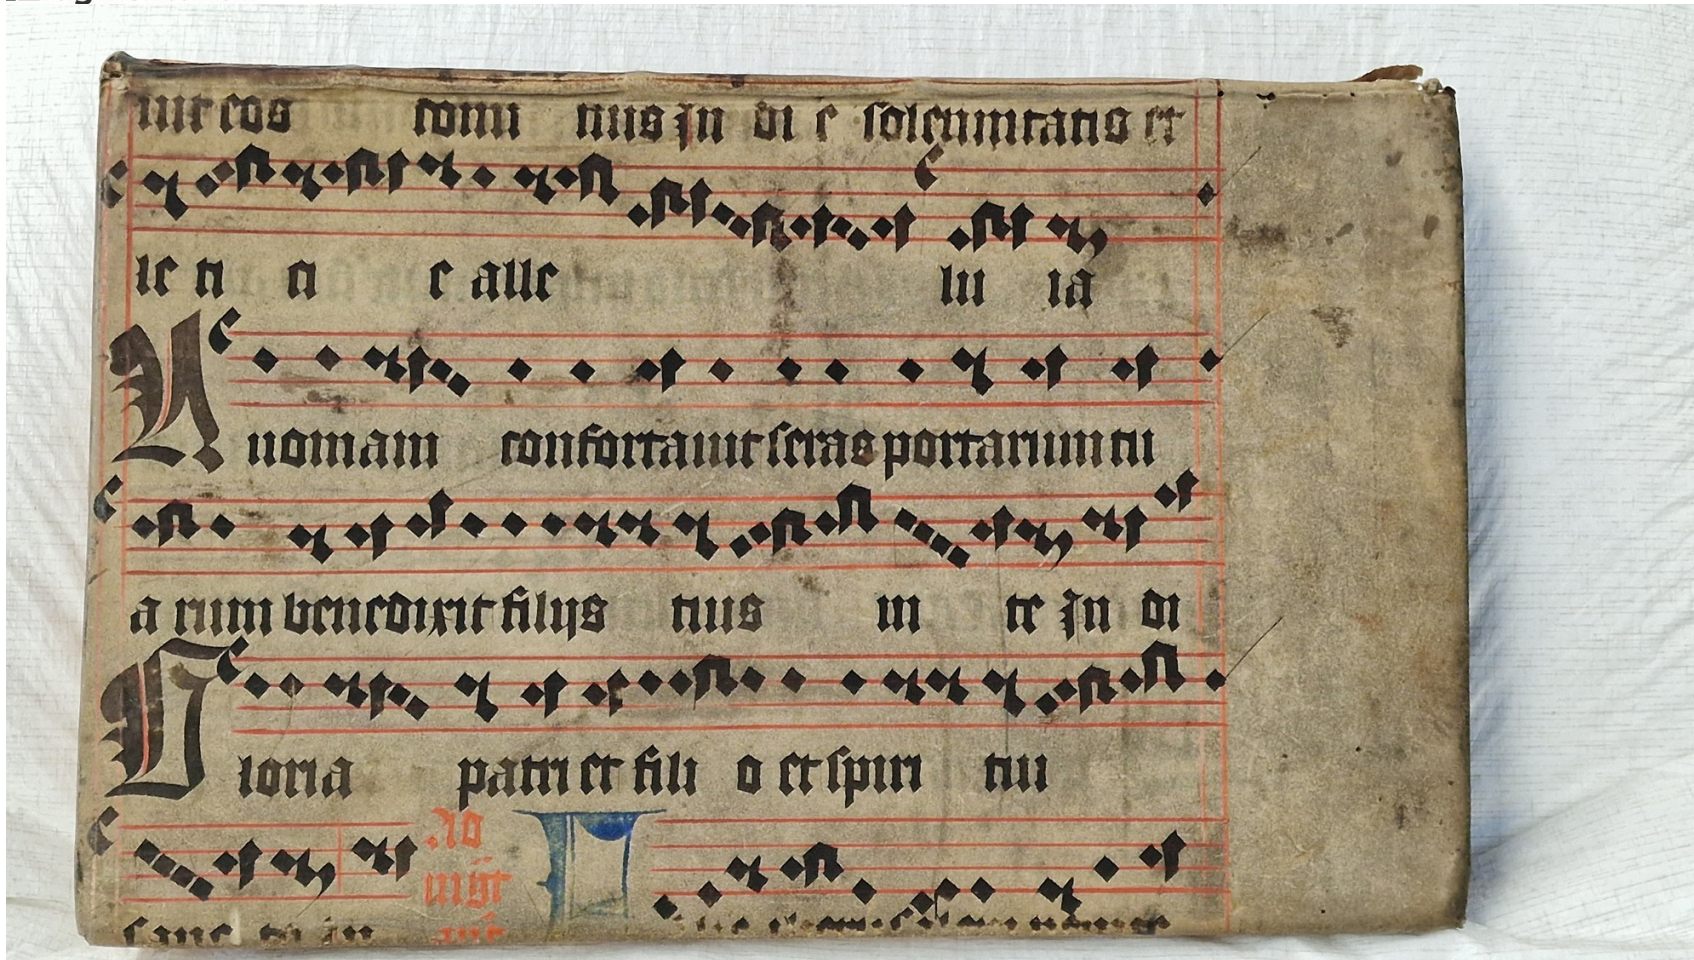 uit eos domi nus In di e solennitatis et
le ti ti e alle lu ia
Quoniam confortauit seras portarum tu
a rum benedixit filijs tuis in te In di
Gloria patri et fili o et spiri tui
Ad
sanc to In